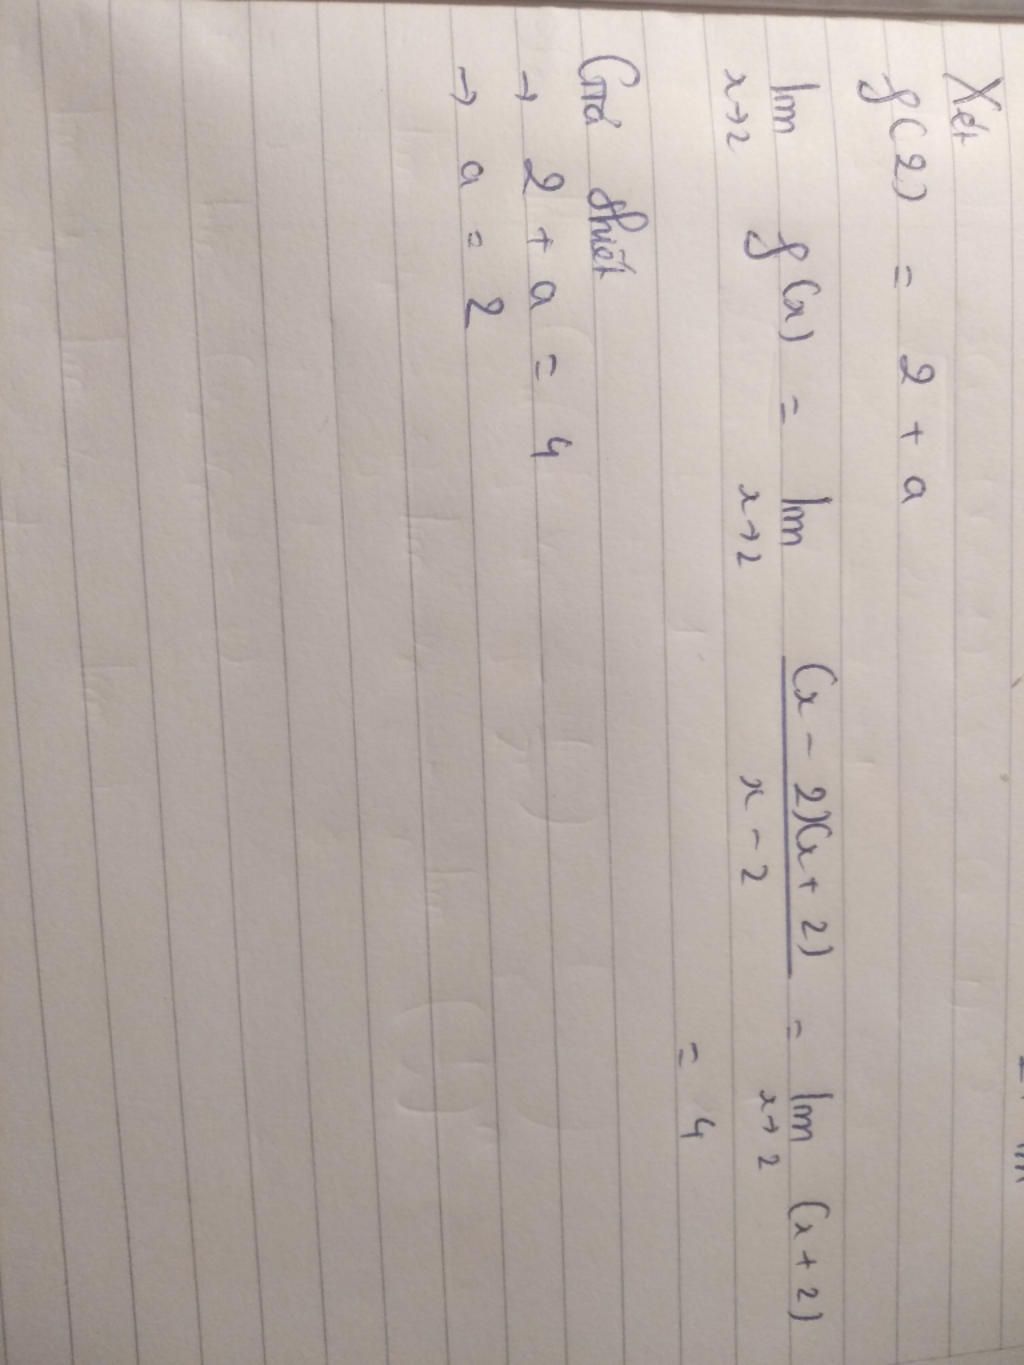 Xét
f(2) = 2 + a
lim f(x) = lim (x - 2)(x + 2) = lim (x + 2)
x→2 x→2 x - 2 x→2
= 4
Giả thiết
→ 2 + a = 4
→ a = 2